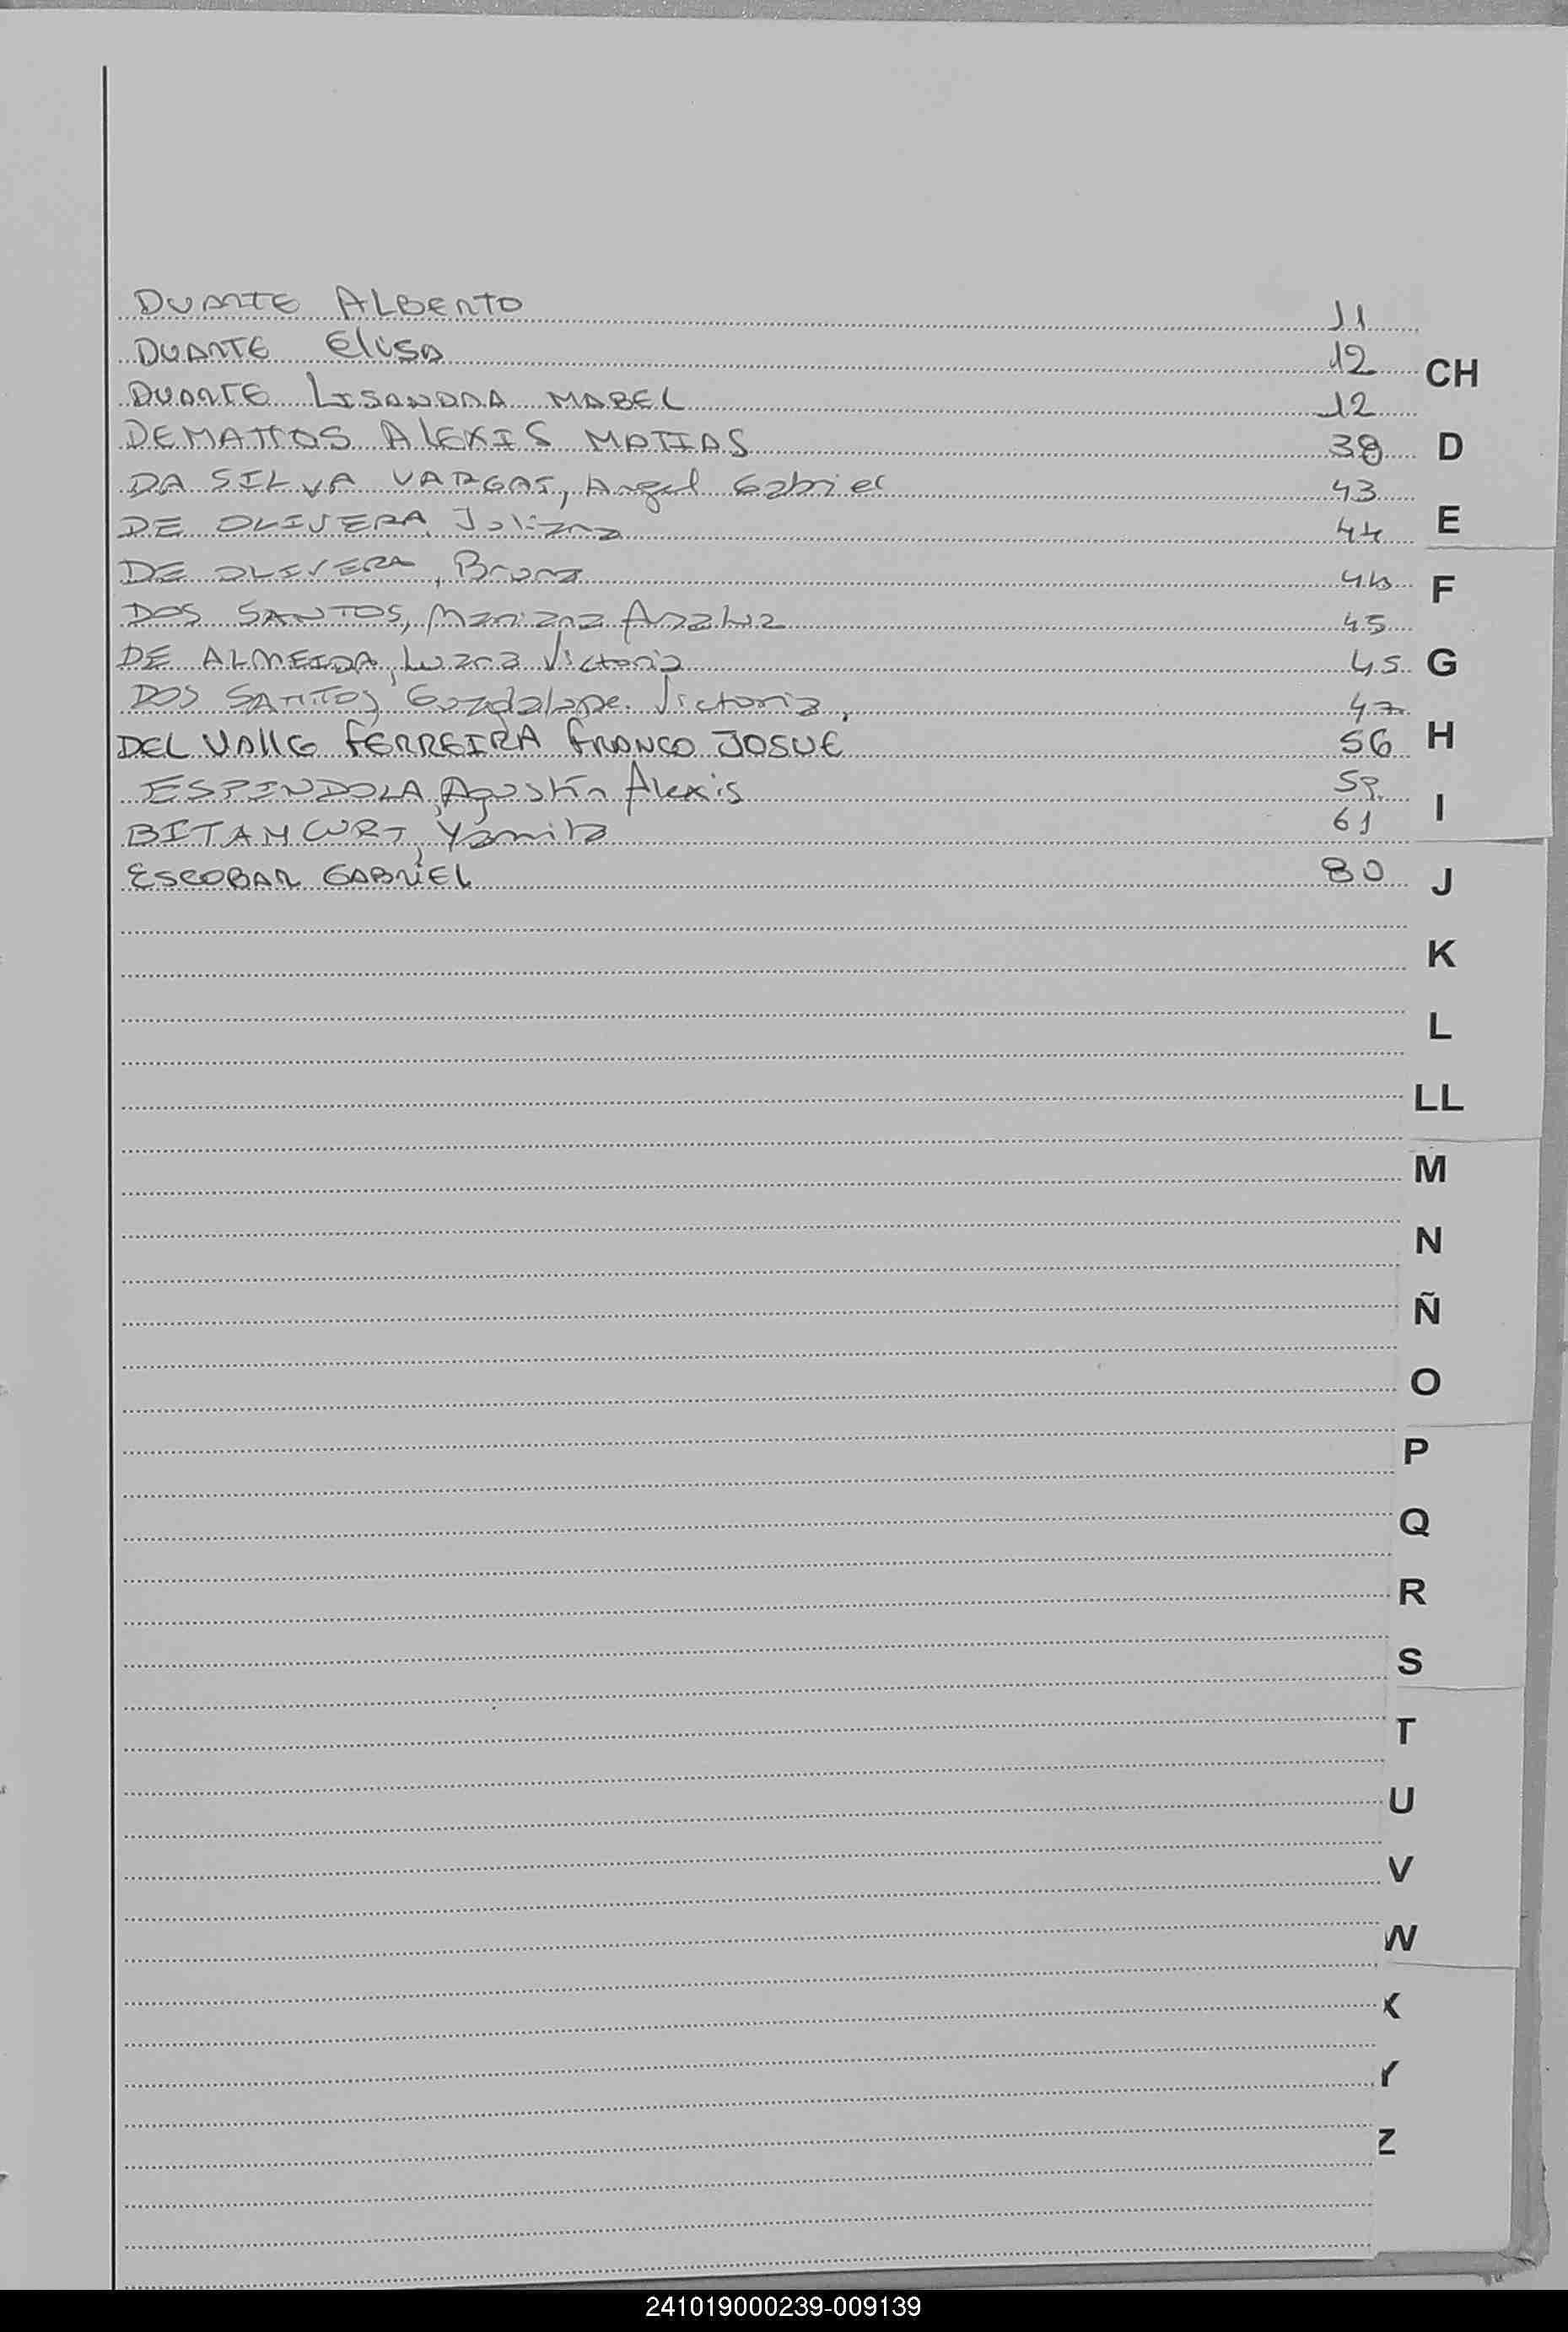 DUARTE ALBERTO 11
DUARTE Elisa 12
DUARTE LISANDRA MABEL 12
DEMATTOS ALEXIS MATIAS 38
DA SILVA VARGAS, Angel Gabriel 43
DE OLIVERA, Juliana 44
DE OLIVERA, Bruna 44
DOS SANTOS, Mariana Analuz 45
DE ALMEIDA, Luana Victoria 45
DOS SANTOS, Guadalupe Victoria, 47
DEL VAllE FERREIRA FRANCO JOSUE 56
ESPINDOLA, Agustín Alexis 59
BITAMCURT, Yamila 61
ESCOBAR GABRIEL 80
CH
D
E
F
G
H
I
J
K
L
LL
M
N
Ñ
O
P
Q
R
S
T
U
V
W
X
Y
Z
241019000239-009139